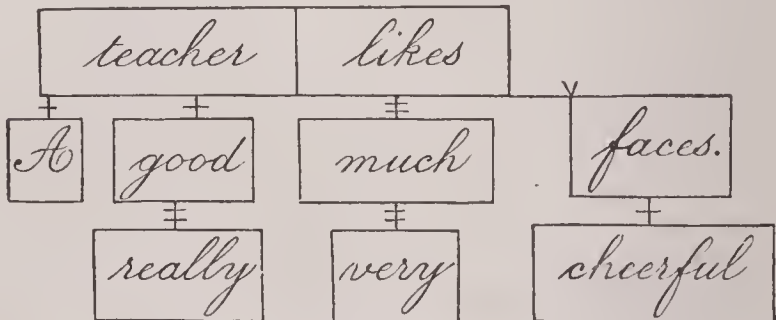 teacher likes
A good much faces.
really very cheerful